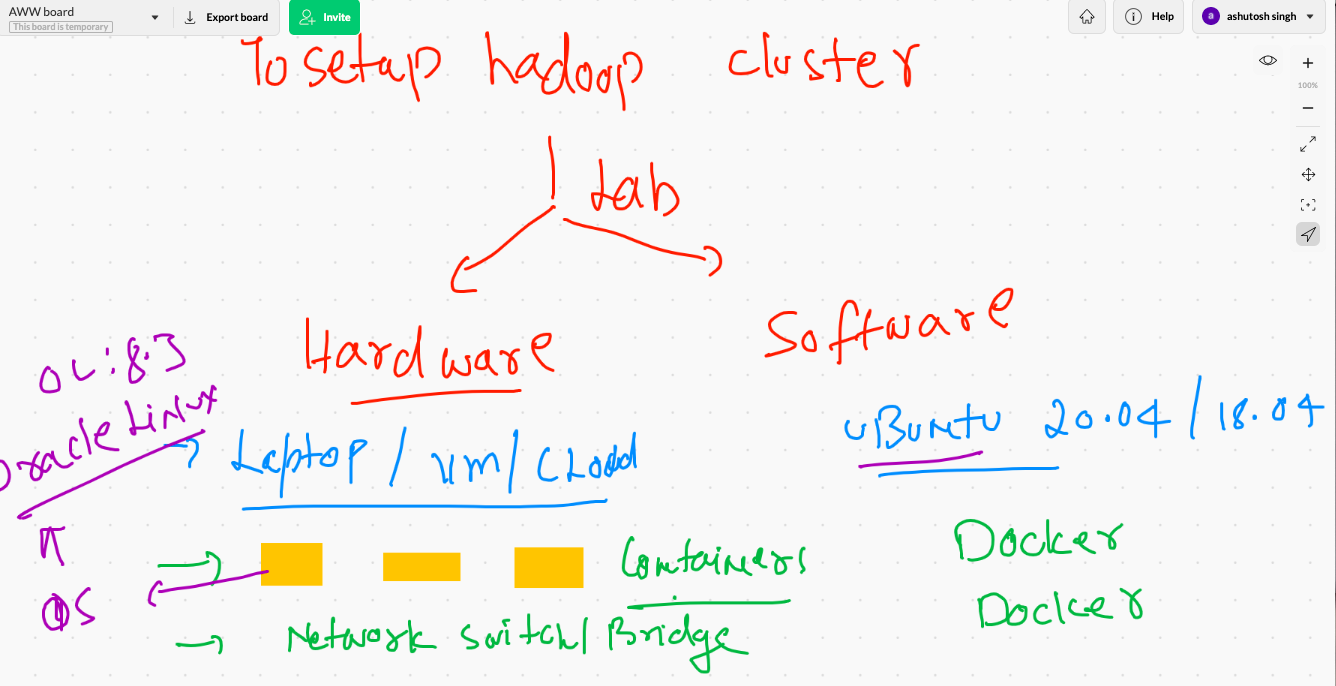 AWW board
This board is temporary
Export board
Invite
Help
a
ashutosh singh
100%
To setup hadoop cluster
Lab
Hardware
Software
OL:8.3
Oracle Linux
Laptop / VM / Cloud
uBuntu 20.04 / 18.04
Containers
Docker
OS
Docker
Network switch/ Bridge